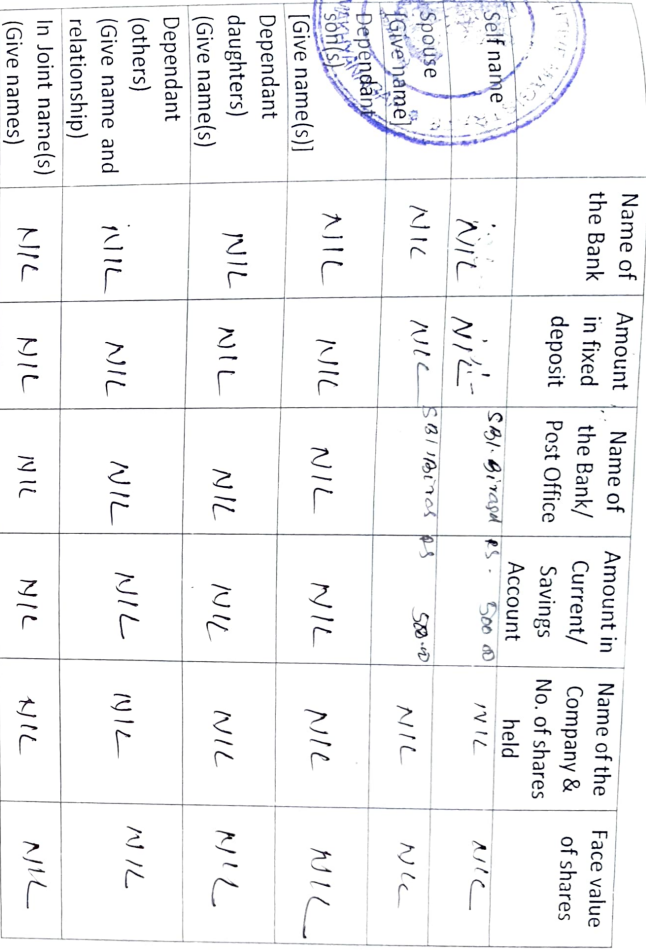 Name of the Bank Amount in fixed deposit Name of the Bank/ Post Office Amount in Current/ Savings Account Name of the Company & No. of shares held Face value of shares
Self name NIL NIL SBI. Rs. 500.00 NIL NIL
Spouse [Give name] NIL NIL SBI, Rs 500.00 NIL NIL
Dependant son(s) [Give name(s)] NIL NIL NIL NIL NIL NIL
Dependant daughters) (Give name(s) NIL NIL NIL NIL NIL NIL
Dependant (others) (Give name and relationship) NIL NIL NIL NIL NIL NIL
In Joint name(s) (Give names) NIL NIL NIL NIL NIL NIL